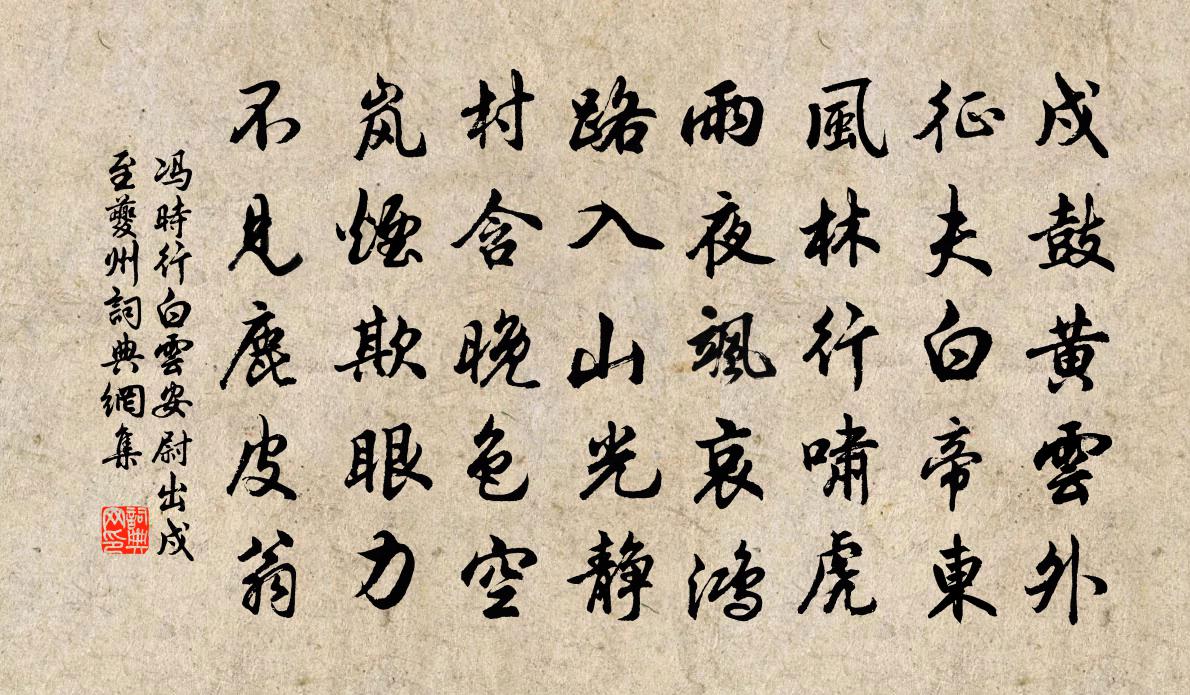 戍鼓黃雲外
征夫白帝東
風林行嘯虎
雨夜颯哀鴻
路入山光靜
村含晚色空
岚煙欺眼力
不見鹿皮翁
冯時行白雲安尉出戍
至夔州詞典網集
詞典网印